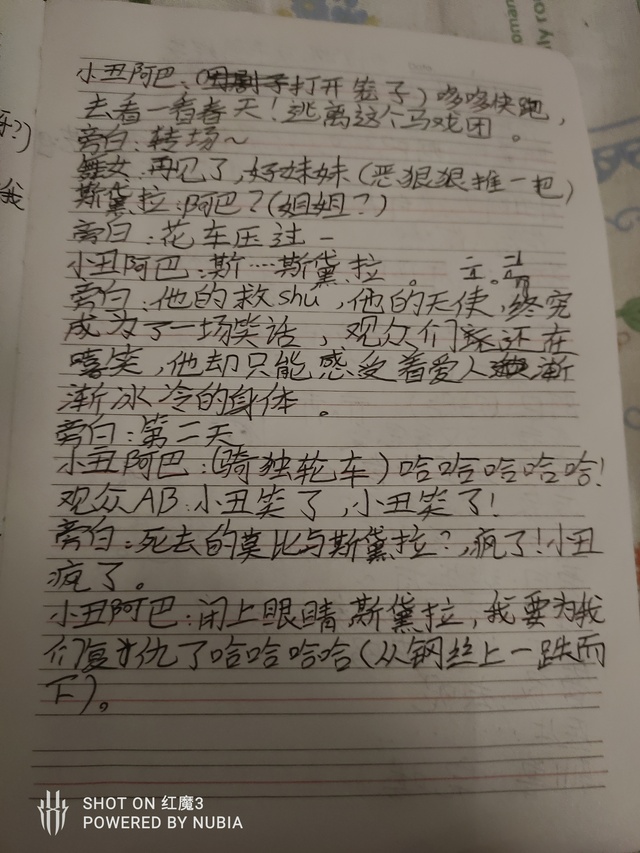 oman
ly ro
乐?)
我
小丑阿巴:(打开笼子)哆哆快跑,
去看一看春天!逃离这个马戏团。
旁白:转场~
舞女:再见了,好妹妹(恶狠狠推一把)
斯黛拉:阿巴?(姐姐?)
旁白:花车压过一
小丑阿巴:斯…斯黛拉。
旁白:他的救shu,他的天使,终究
成为了一场笑话,观众们还在
嘻笑,他却只能感受着爱人渐
渐冰冷的身体。
旁白:第二天
小丑阿巴:(骑独轮车)哈哈哈哈哈!
观众AB:小丑笑了,小丑笑了!
旁白:死去的莫比与斯黛拉?,疯了!小丑
疯了。
小丑阿巴:闭上眼睛,斯黛拉,我要为我
们复仇了哈哈哈哈(从钢丝上一跌而
下)。
SHOT ON 红魔3
POWERED BY NUBIA